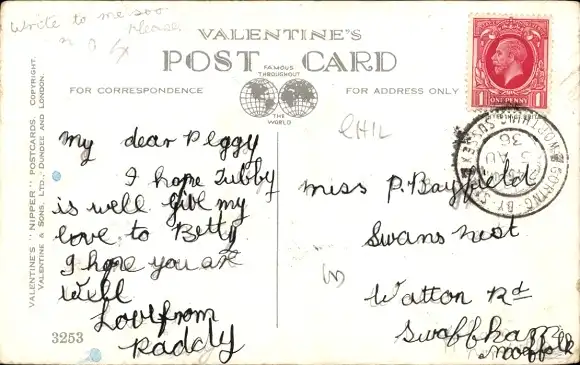 Write to me soo
Please
VALENTINE'S
POST CARD
FAMOUS
THROUGHOUT
THE
WORLD
FOR CORRESPONDENCE
FOR ADDRESS ONLY
VALENTINE'S "NIPPER" POSTCARDS. COPYRIGHT.
VALENTINE & SONS, LTD., DUNDEE AND LONDON.
My dear Peggy
I hope Tubby
is well give my
love to Betty
I hope you are
well
Love from
Paddy
3253
CHIL
Miss P. Bayfield
Swans nest
Watton Rd
Swaffham
Norfolk
ONE PENNY
1 1
GORING BY SEA
WORTHING SUSSEX
AU
36